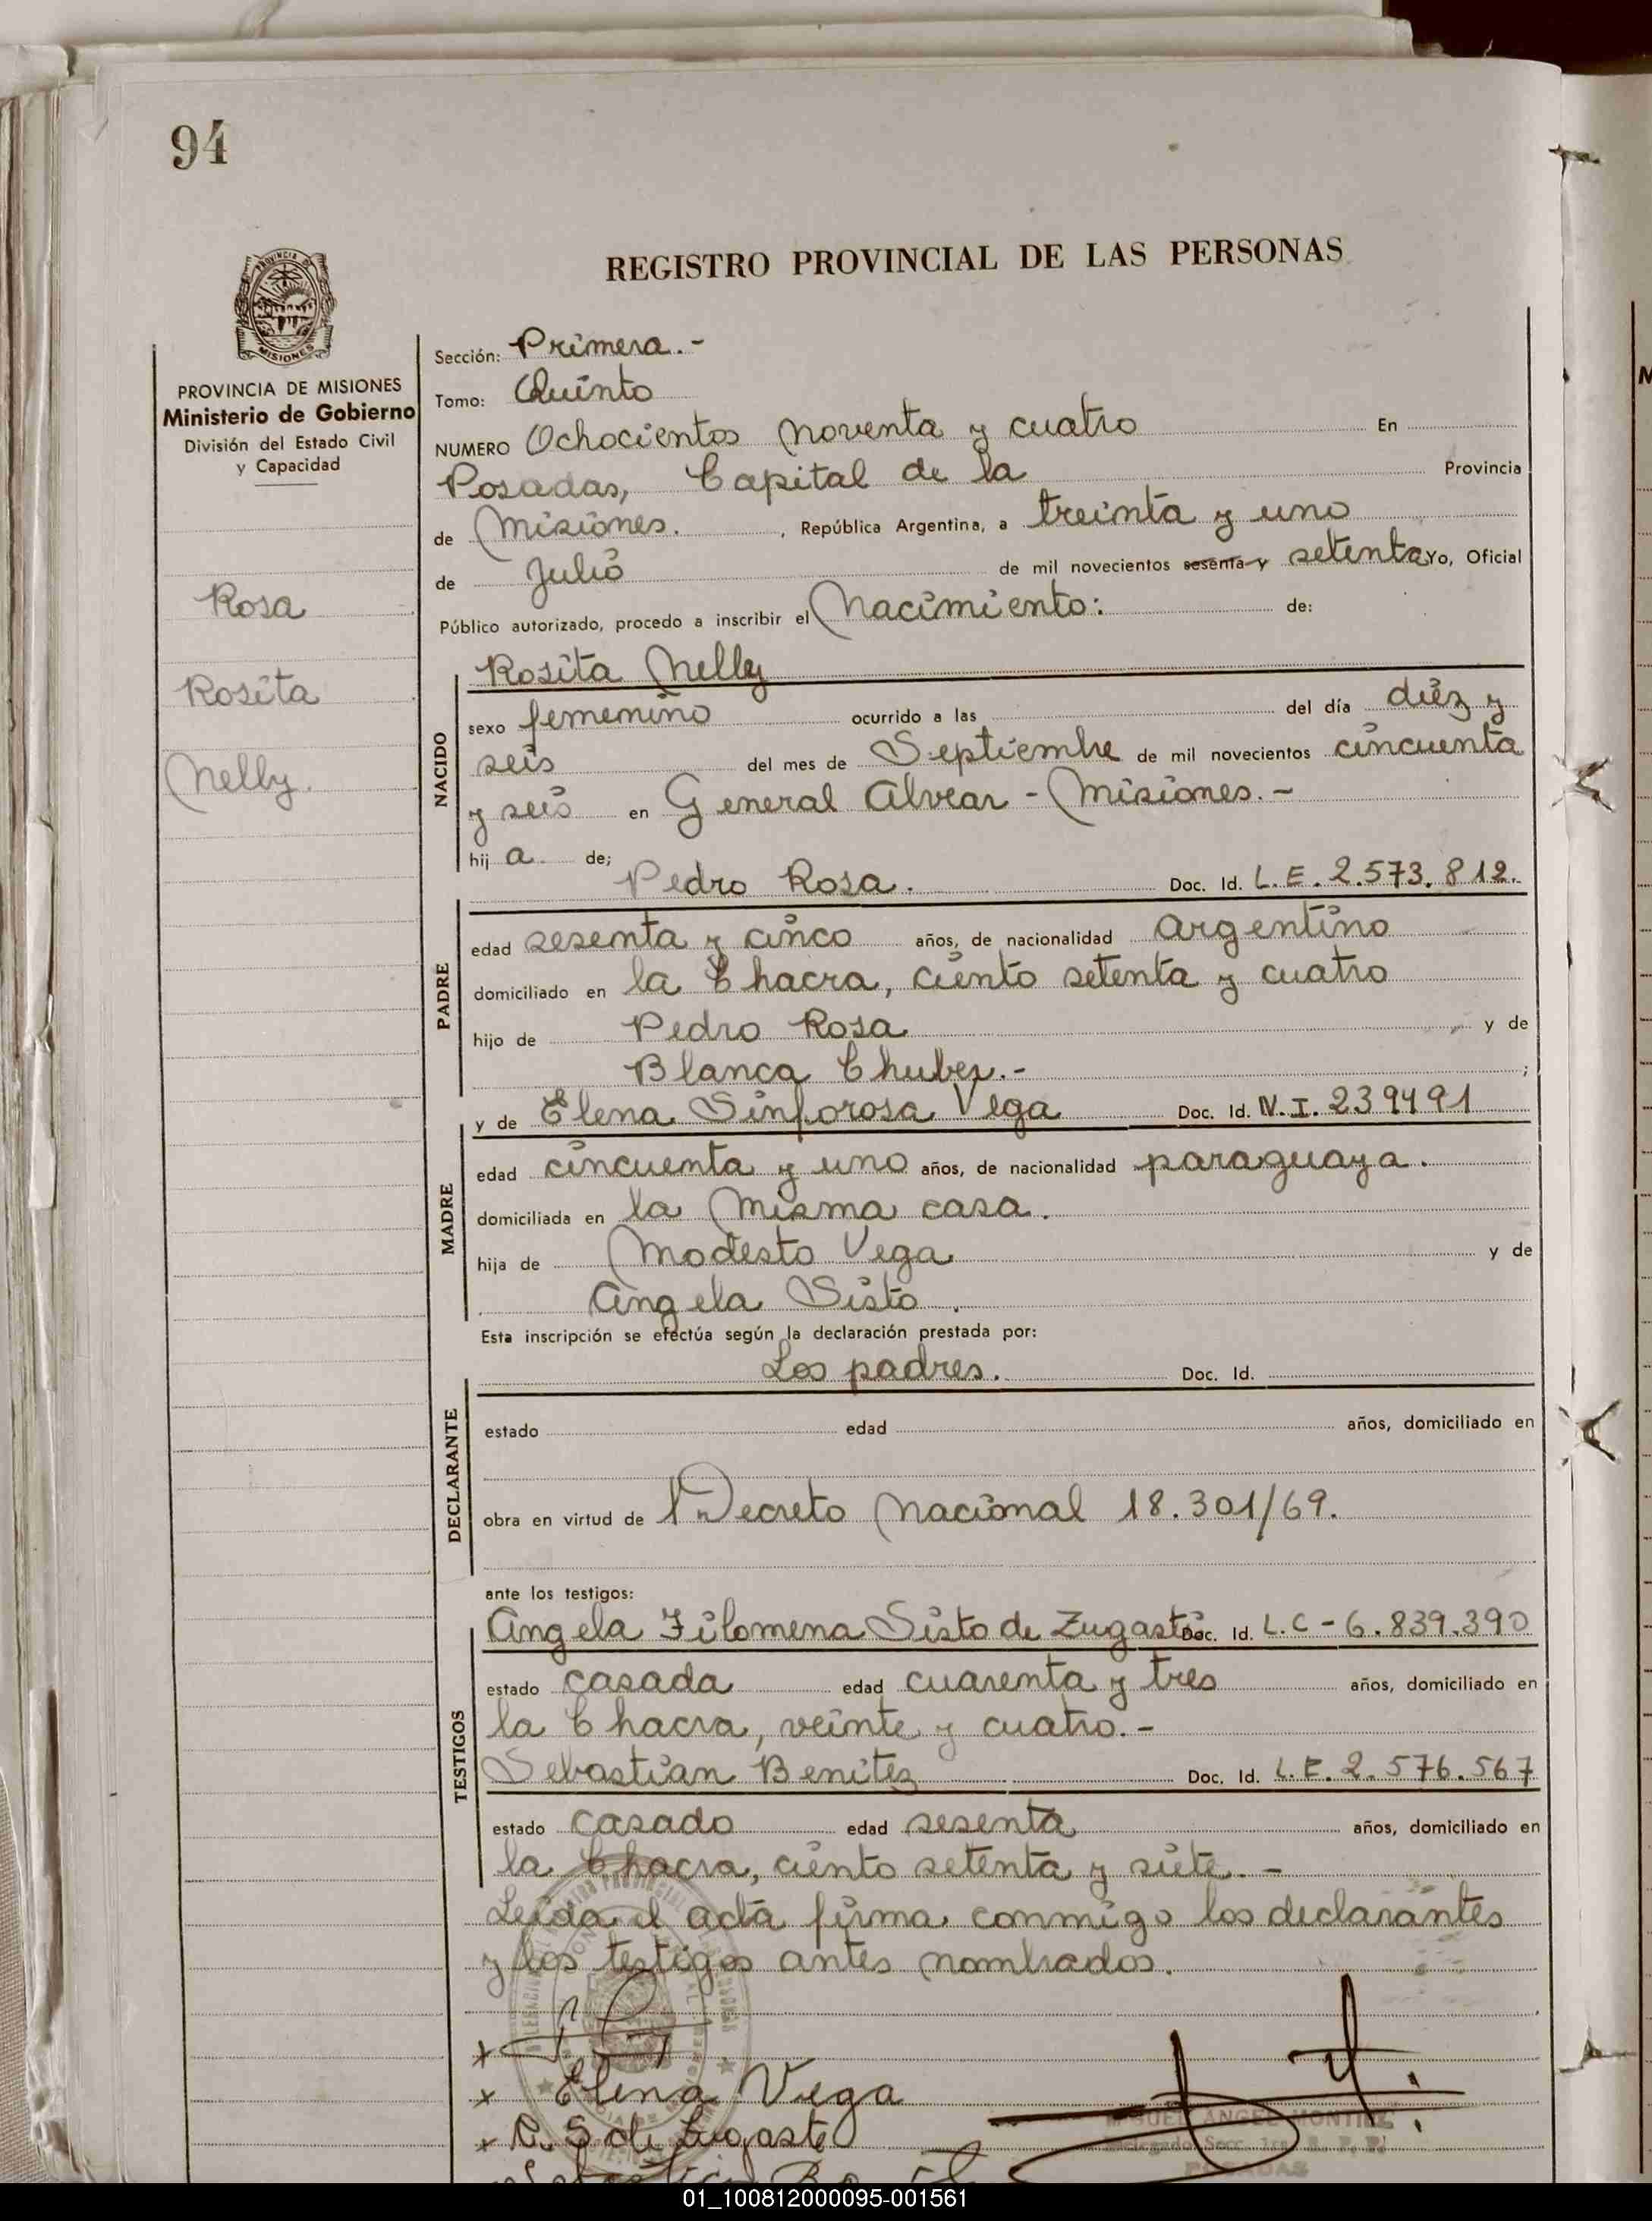 94
REGISTRO PROVINCIAL DE LAS PERSONAS
PROVINCIA DE MISIONES
Ministerio de Gobierno
División del Estado Civil
y Capacidad
Rosa
Rosita
Nelly.
Sección: Primera.-
Tomo: Quinto
NUMERO Ochocientos noventa y cuatro En
Posadas, Capital de la Provincia
de Misiones. , República Argentina, a treinta y uno
de Julio de mil novecientos sesenta y setenta Yo, Oficial
Público autorizado, procedo a inscribir el Nacimiento: de:
Rosita Nelly
NACIDO
sexo femenino ocurrido a las del día diéz y
seis del mes de Septiembre de mil novecientos cincuenta
y seis en General Alvear - Misiones.-
hij a de;
Pedro Rosa. Doc. Id. L.E. 2.573.812.
PADRE
edad sesenta y cinco años, de nacionalidad argentino
domiciliado en la Chacra, ciento setenta y cuatro
hijo de Pedro Rosa y de
Blanca Chubez.- ;
y de Elena Sinforosa Vega Doc. Id. N.I. 239491
MADRE
edad cincuenta y uno años, de nacionalidad paraguaya.
domiciliada en la misma casa.
hija de Modesto Vega y de
Angela Sisto.
Esta inscripción se efectúa según la declaración prestada por:
Los padres. Doc. Id.
DECLARANTE
estado edad años, domiciliado en
obra en virtud de Decreto Nacional 18.301/69.
ante los testigos:
Angela Filomena Sisto de Zugasti Doc. Id. L.C - 6.839.390
TESTIGOS
estado casada edad cuarenta y tres años, domiciliado en
la Chacra, veinte y cuatro.-
Sebastian Benitez Doc. Id. L.E. 2.576.567
estado casado edad sesenta años, domiciliado en
la Chacra, ciento setenta y siete.-
Leida el acta firma conmigo los declarantes
y los testigos antes nombrados.
Elena Vega
MIGUEL ANGEL MONTIEL
POSADAS
01_100812000095-001561